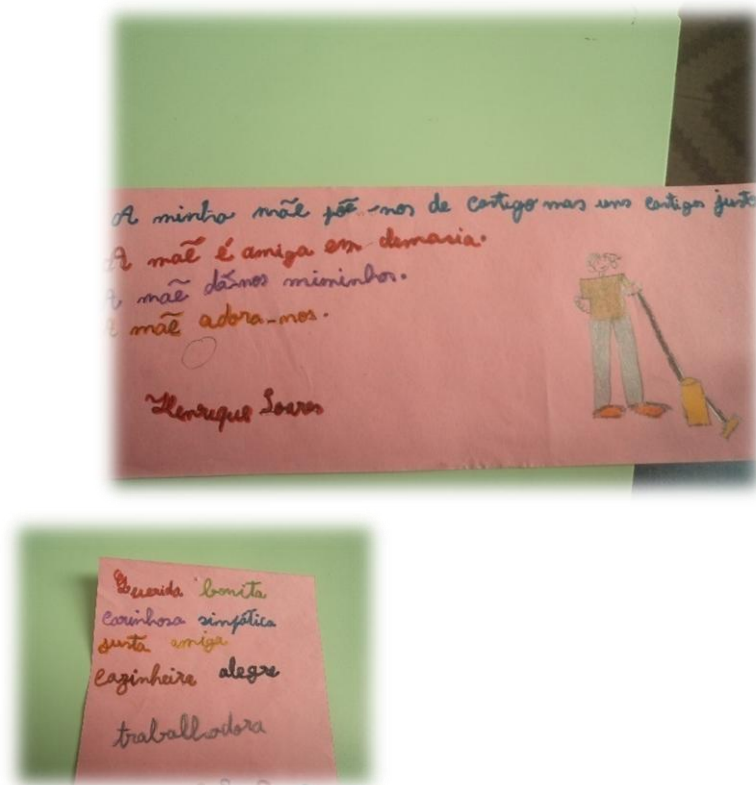 A minha mãe põe-nos de castigo mas uns castigos justo
A mãe é amiga em demasia.
A mãe dá-nos miminhos.
A mãe adora-nos.
Henrique Soares
Querida bonita
carinhosa simpática
justa amiga
cozinheira alegre
trabalhadora